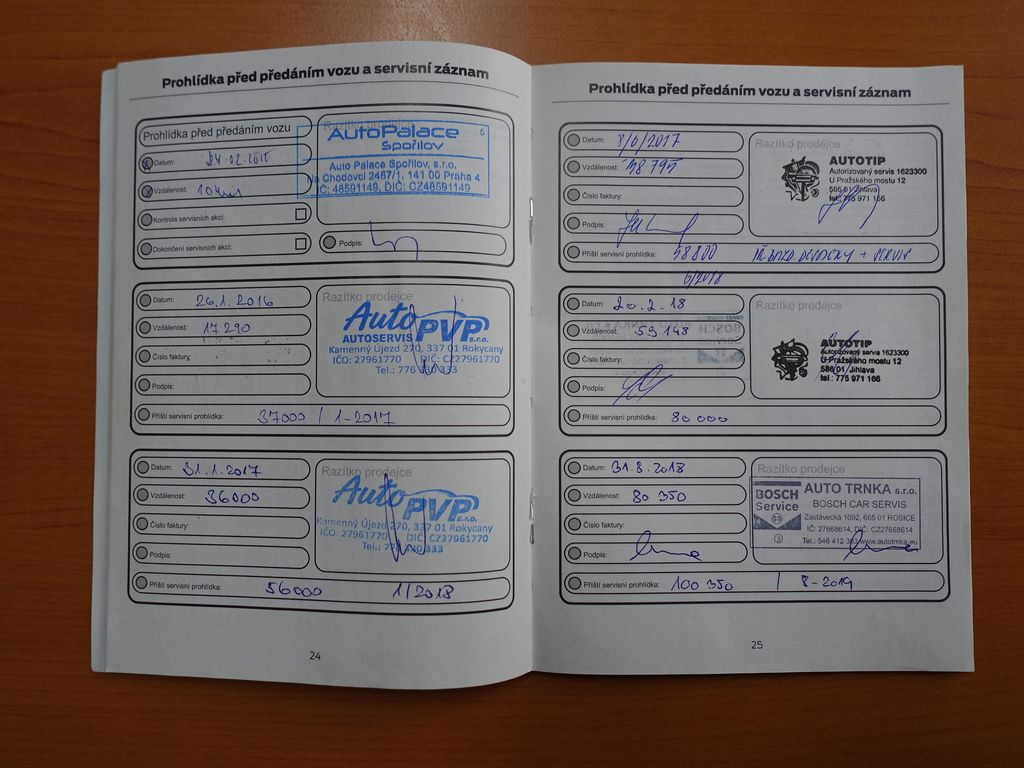 Prohlídka před předáním vozu a servisní záznam
Prohlídka před předáním vozu
Datum: 24-02-2015
Vzdálenost: 10 km
Kontrola servisních akcí:
Dokončení servisních akcí:
Razítko prodejce
AutoPalace 5
Spořilov
Auto Palace Spořilov, s.r.o.
Na Chodovci 2457/1, 141 00 Praha 4
IČ: 48591149, DIČ: CZ48591149
Podpis:
Datum: 26.1.2016
Vzdálenost: 17 290
Číslo faktury:
Podpis:
Razítko prodejce
Auto PVP s.r.o.
AUTOSERVIS
Kamenný Újezd 270, 337 01 Rokycany
IČO: 27961770 DIČ: CZ27961770
Tel.: 776 330 333
Příští servisní prohlídka: 37000 / 1-2017
Datum: 31.1.2017
Vzdálenost: 36000
Číslo faktury:
Podpis:
Razítko prodejce
Auto PVP s.r.o.
Kamenný Újezd 270, 337 01 Rokycany
IČO: 27961770 DIČ: CZ27961770
Tel.:
Příští servisní prohlídka: 56000 1/2018
24
Prohlídka před předáním vozu a servisní záznam
Datum: 8/6/2017
Vzdálenost: 38 795
Číslo faktury:
Podpis:
Razítko prodejce
AUTOTIP
Autorizovaný servis 1623300
U Pražského mostu 12
586 01 Jihlava
tel.: 775 971 166
Příští servisní prohlídka: 58800 + SERVIS
6/2018
Datum: 20.2.18
Vzdálenost: 59 148
Číslo faktury:
Podpis:
Razítko prodejce
AUTOTIP
Autorizovaný servis 1623300
U Pražského mostu 12
586 01 Jihlava
tel.: 775 971 166
Příští servisní prohlídka: 80000
Datum: 31.8.2018
Vzdálenost: 80 350
Číslo faktury:
Podpis:
Razítko prodejce
BOSCH
Service
AUTO TRNKA s.r.o.
BOSCH CAR SERVIS
Zastávecká 1092, 665 01 ROSICE
IČ: 27668614, DIČ: CZ27668614
Tel.: 546 412 303 www.autotrnka.eu
Příští servisní prohlídka: 100 350 / 8-2019
25